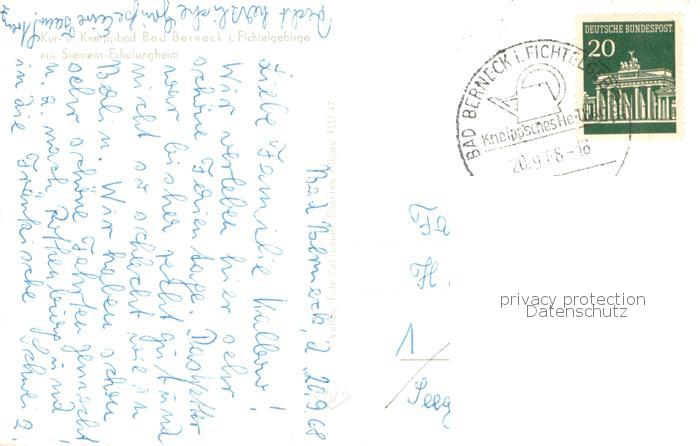 Kur- u. Kneippbad Bad Berneck i. Fichtelgebirge
mit Siemens-Erholungsheim
Bad Berneck, d. 20.9.68
Liebe Familie
Wir verleben hier sehr
schöne Ferientage. Das Wetter
war bisher recht gut und
nicht so schlecht wie in
Berlin. Wir haben schon
sehr schöne Fahrten gemacht
u. a. nach Rothenburg und
in die Fränkische Schweiz.
Recht herzliche Grüße
DEUTSCHE BUNDESPOST
20
BAD BERNECK I. FICHTELGEB
Kneippsches Heilbad
20.9.68-16
Fa
H.
1
Seeg
privacy protection
Datenschutz